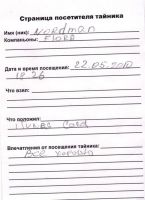 Страница посетителя тайника
Имя (ник): Nordman
Компаньоны: FLORA
Дата и время посещения: 22.05.2010
18.26
Что взял:
Что положил:
Card
Впечатления от посещения тайника:
Все хорошо